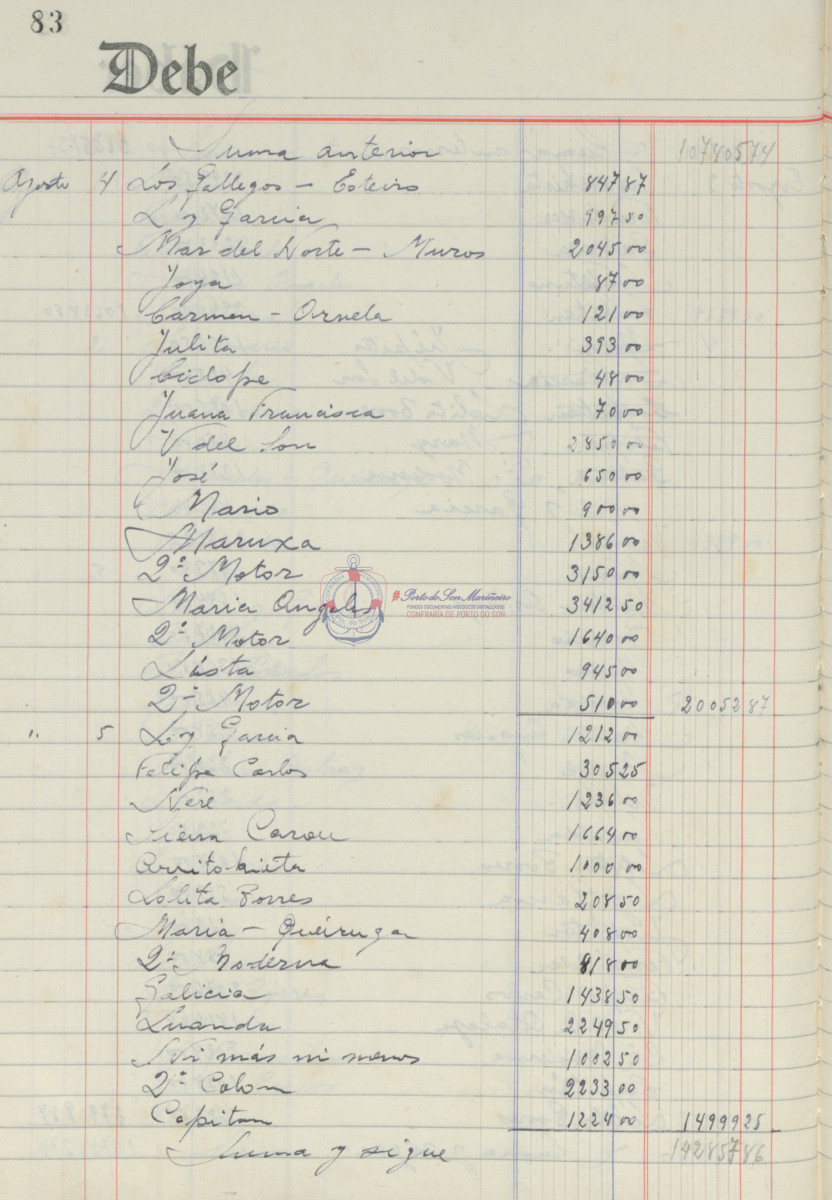 83
Debe
Suma anterior 10780574
Agosto 4 Los Gallegos - Esteiro 847 87
L y Garcia 997 50
Mar del Norte - Muros 2045 00
Joya 87 00
Carmen - Ornela 121 00
Julita 393 00
Ciclope 48 00
Juana Francisca 70 00
V del Son 2850 00
José 650 00
Mario 900 00
Maruxa 1386 00
2º Motor 3150 00
Maria Angeles 3412 50
2º Motor 1640 00
Lista 945 00
2º Motor 510 00 20052 87
" 5 L y Garcia 1212 00
Felipe Carlos 305 25
Nere 1236 00
Sierra Carou 1664 00
1000 00
Lolita Borres 208 50
Maria - Queiruga 408 00
2ª Moderna 818 00
Galicia 1438 50
Luanda 2249 50
Ni más ni menos 1002 50
2º Colon 2233 00
Capitan 1224 00 14999 25
Suma y sigue 142857 86
# Porto do Son Mariñeiro
FONDOS DOCUMENTAIS HISTÓRICOS DIXITALIZADOS
CONFRARÍA DE PORTO DO SON